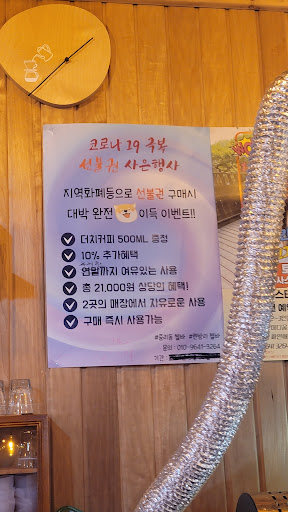 코로나 19 극복
선불권 사은행사
지역화폐등으로 선불권 구매시
대박 완전 이득 이벤트!!
더치커피 500ML 증정
10% 추가혜택
연말까지 여유있는 사용
총 21,000원 상당의 혜택!
2곳의 매장에서 자유로운 사용
구매 즉시 사용가능
기간 :